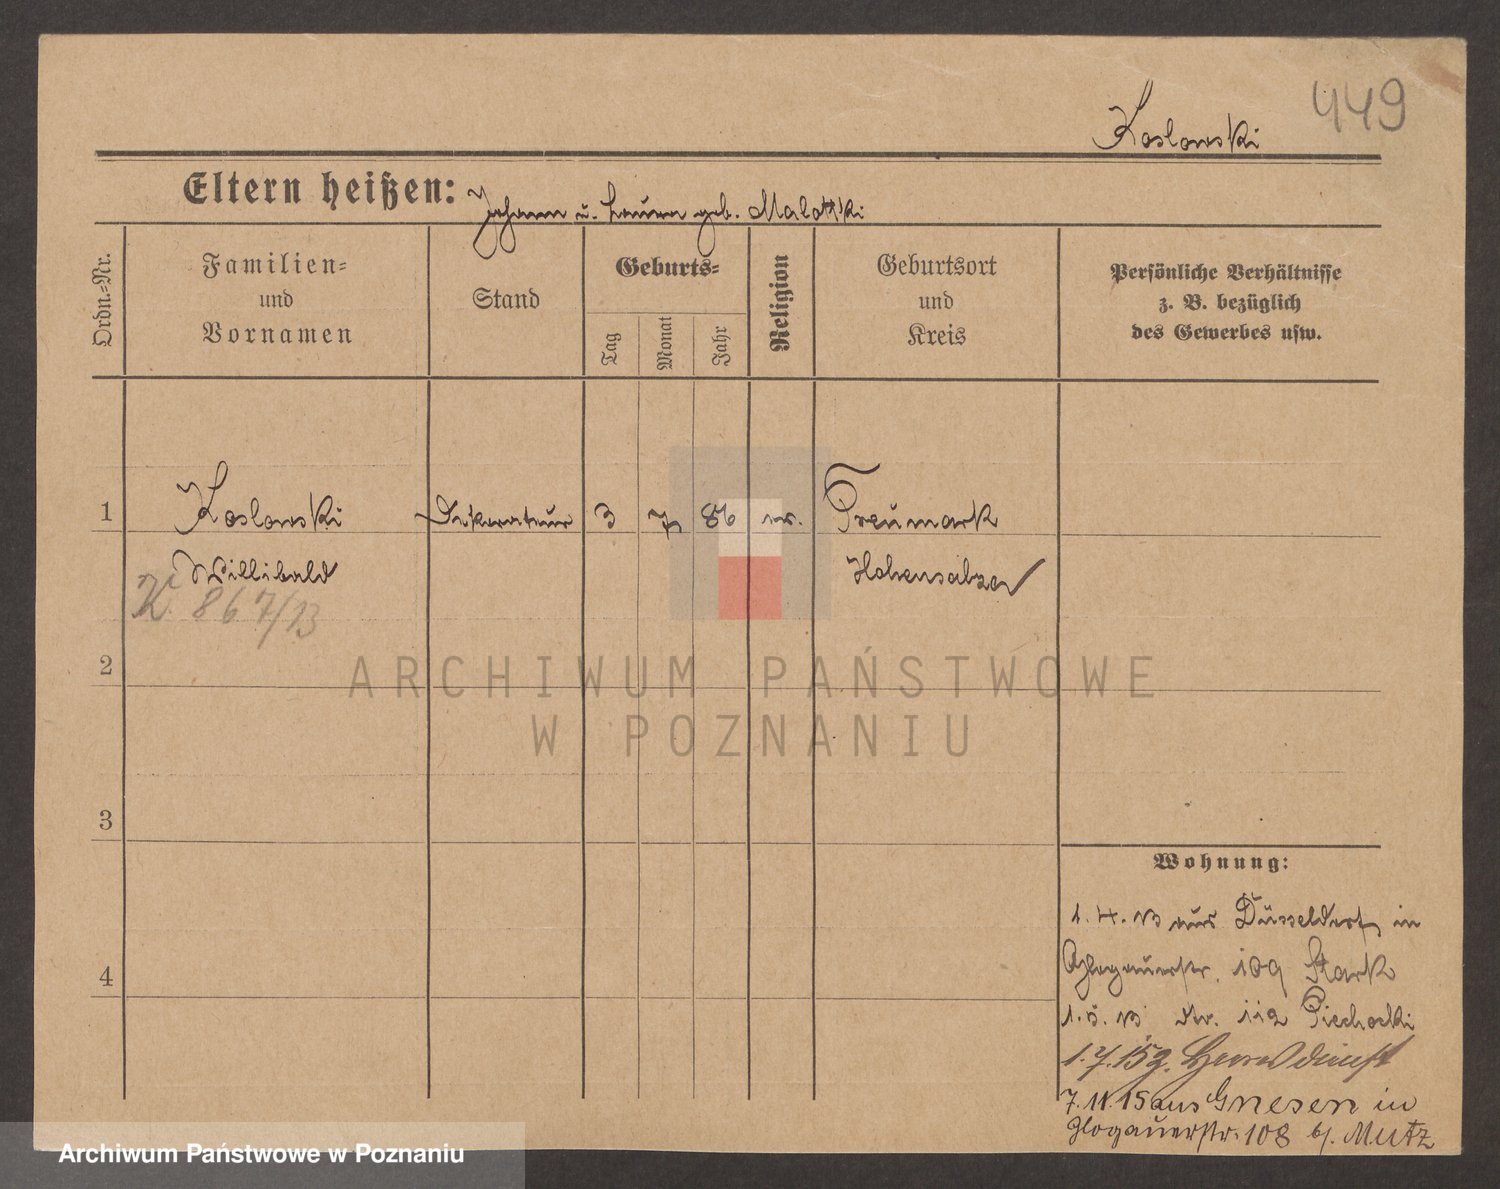 449
Koslowski
Eltern heißen: Johann u. Laura geb. Malotzki
Ordn.=Nr.
Familien=
und
Vornamen
Stand
Geburts=
Tag
Monat
Jahr
Religion
Geburtsort
und
Kreis
Persönliche Verhältnisse
z. B. bezüglich
des Gewerbes usw.
1
Koslowski Dekorateur 3 7 86 ev.
Willibald
Hohensalza
K. 867/13
2
ARCHIWUM PAŃSTWOWE
W POZNANIU
3
Wohnung:
1. 4. 13 aus Düsseldorf in
Glogauerstr. 109 Stark
4
1. 5. 13 do. 112 Piechocki
1. 7. 15 z. Heeresdienst
7. 11. 15 aus Gnesen in
Glogauerstr. 108 b/. Mutz
Archiwum Państwowe w Poznaniu